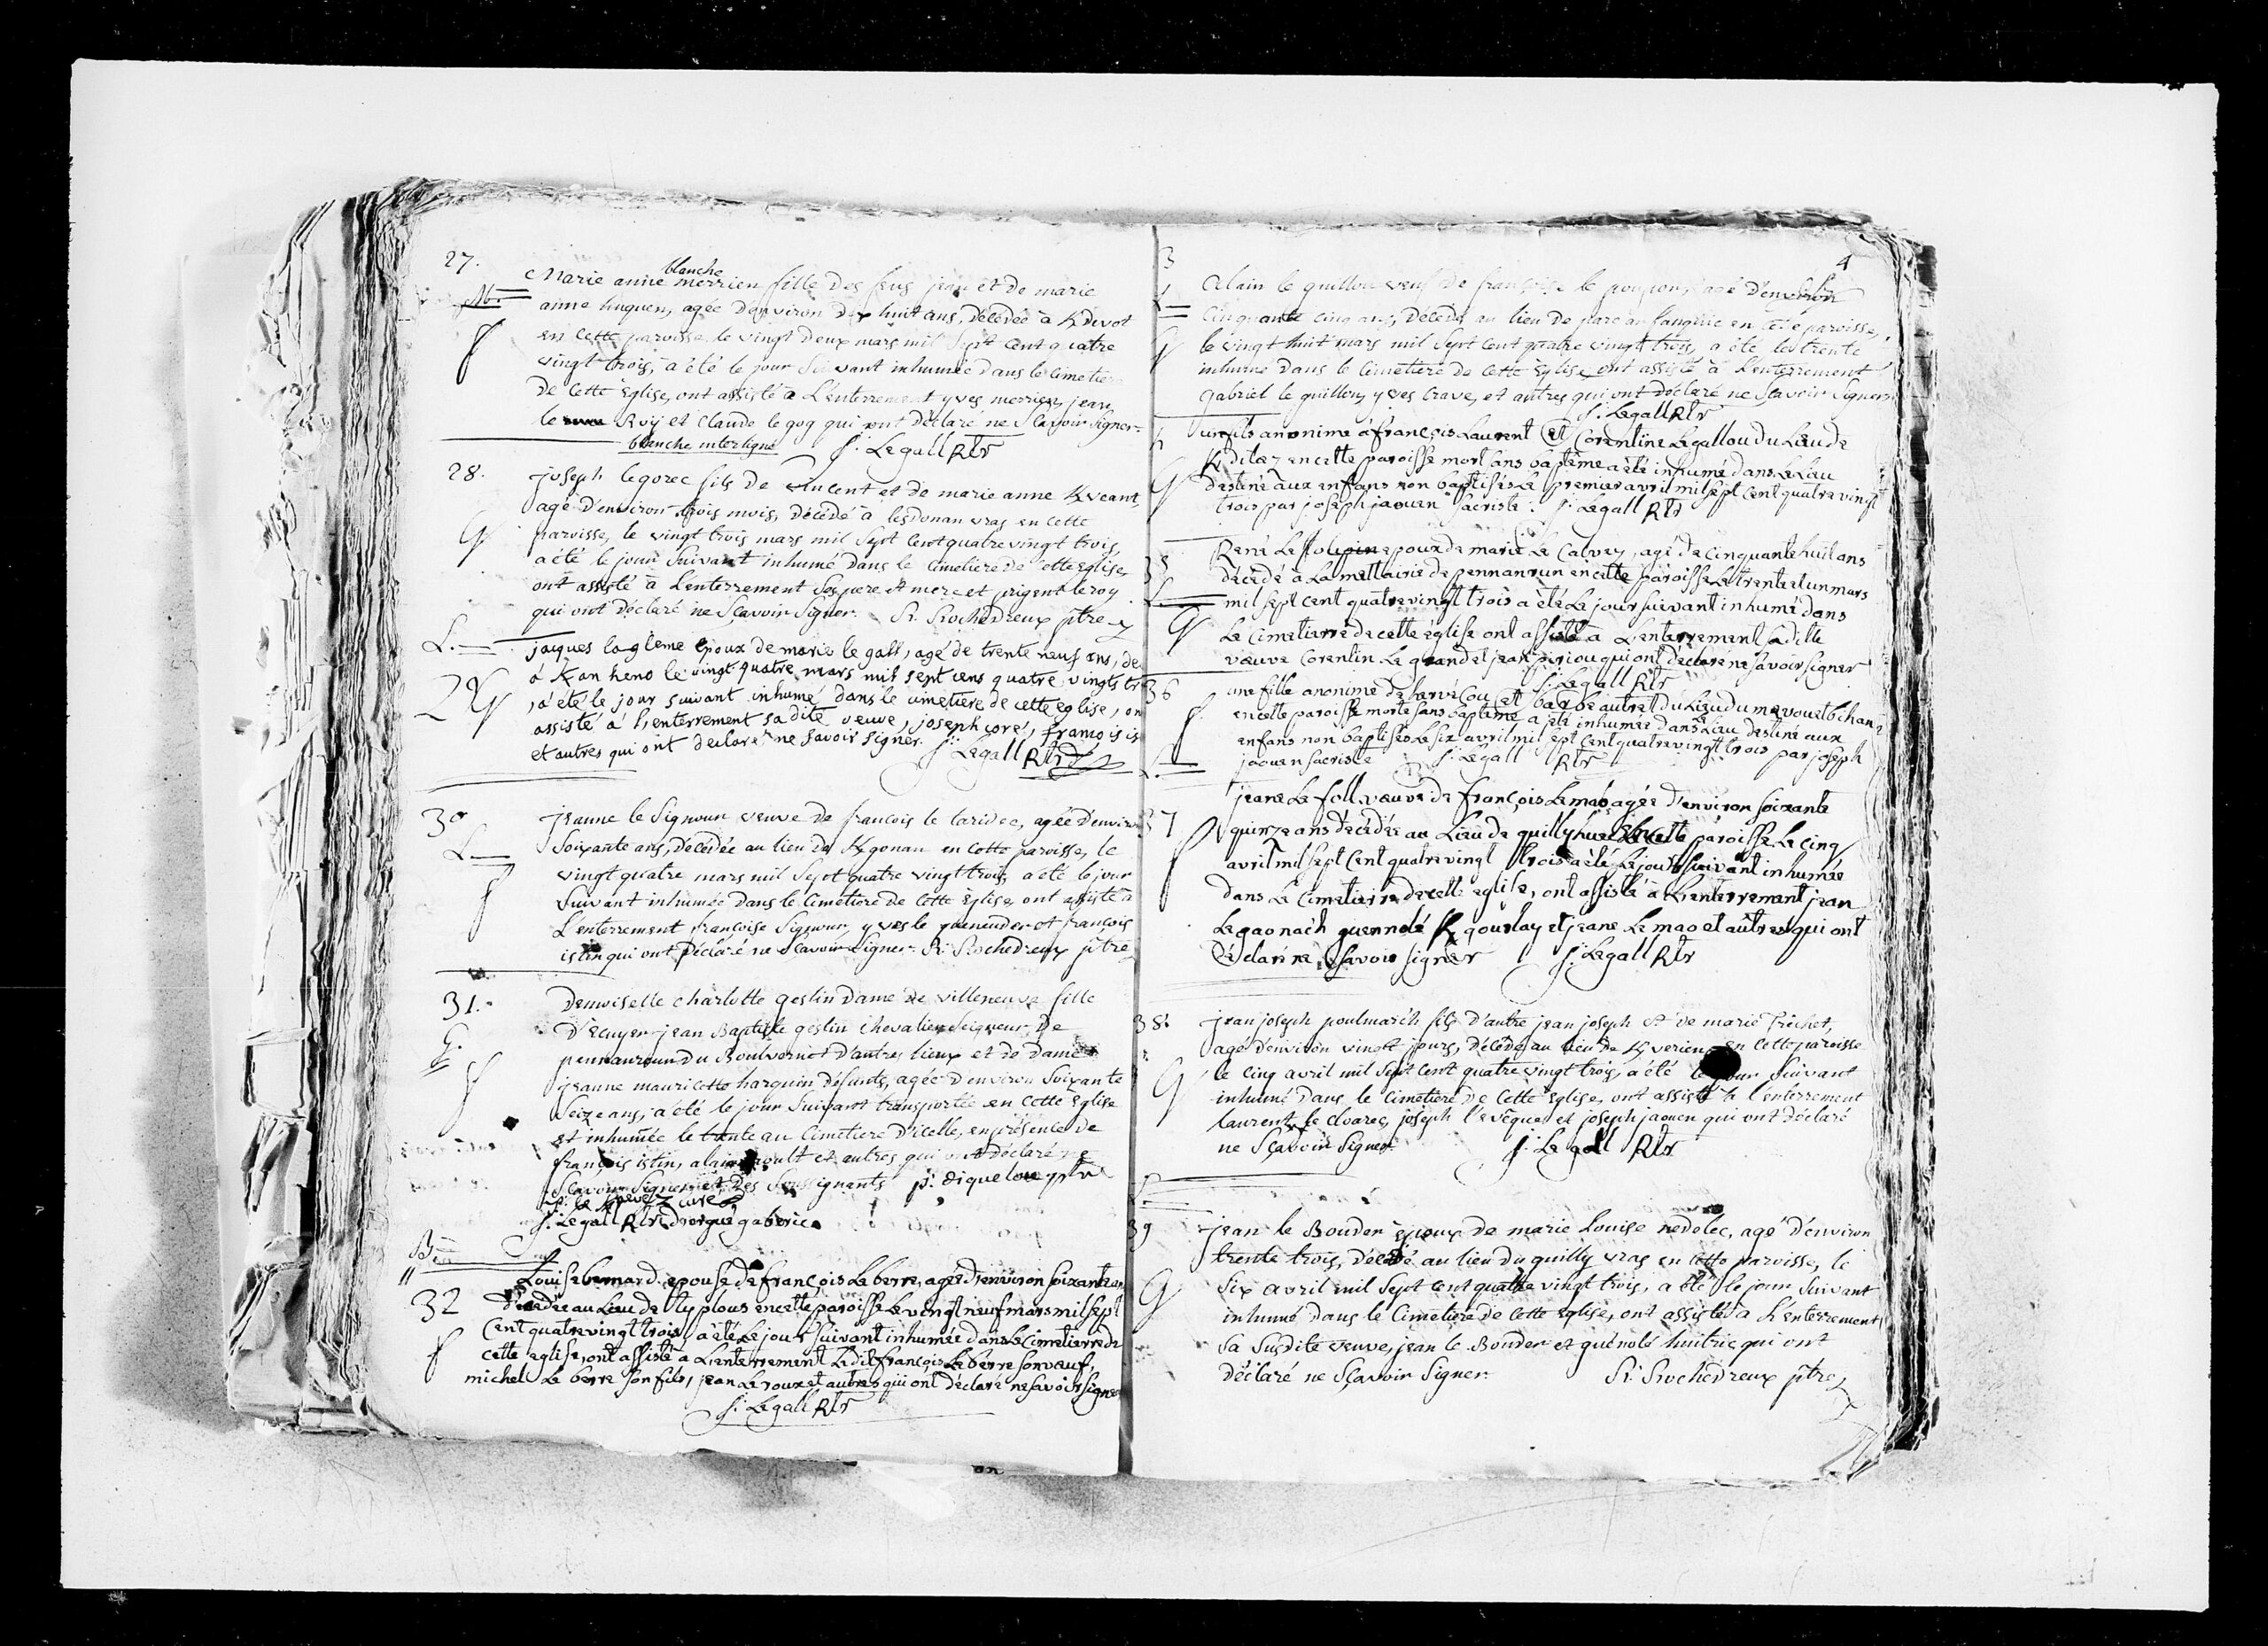 27.
blanche
Marie anne merrien fille des feus jean et de marie
anne huguen, agée d'environ dix huit ans, décédée à Kdivot
en cette paroisse, le vingt deux mars mil sept cent quatre
vingt trois, a été le jour suivant inhumée dans le cimetiere
de cette Eglise, ont assisté à L'enterrement yves merrien, jean
le Roy et Claude le gog qui ont déclaré ne Sçavoir Signer
blanche interligne J: Legall Rtr
28.
joseph legorec fils de vincent et de marie anne Kveant,
agé d'environ trois mois, décédé à lesdonan vras en cette
paroisse, le vingt trois mars mil sept cent quatre vingt trois,
a été le jour suivant inhumé dans le cimetiere de cette Eglise,
ont assisté à L'enterrement Ses pere et mere et prigent le roy
qui ont déclaré ne Sçavoir Signer. R: Rochedreux ptre
L.
jacques époux de marie le gall, agé de trente neuf ans, de
à Kan heno le vingt quatre mars mil sept cens quatre vingts
, a été le jour suivant inhumé dans le cimetiere de cette eglise,
assisté à l'enterrement sa dite veuve, joseph coré, françois
et autres qui ont declaré ne savoir signer. J: Legall Rtr
30
jeanne le Signour veuve de francois le taridec, agée d'environ
L
Soixante ans, décédée au lieu de Kgonan en cette paroisse, le
vingt quatre mars mil sept quatre vingt trois, a été le jour
Suivant inhumée dans le Cimetiere de cette Eglise, ont assisté a
L'enterrement françoise Signour, yves le guenender et françois
istin qui ont déclaré ne Sçavoir Signer. R: Rochedreux ptre
31.
Demoiselle charlotte gestin dame de villeneuve fille
G.
D'Ecuyer jean Baptiste gestin chevalier Seigneur de
pennanroun du Boulvern et d'autres lieux et de dame
jeanne mauricette harquin défunts, agée d'environ Soixante
Seize ans, a été le jour Suivant transportée en cette Eglise
et inhumée le trente au Cimetiere D'icelle, en présence de
françois istin, alain et autres qui ont déclaré ne
Sçavoir Signer et des Soussignants
J: Legall Rtr D'ergué gaberic
Louise bernard epouse de françois Le berre, agée d'environ soixante ans
32
décédée au Lieu de en cette paroisse Le vingt neuf mars mil sept
Cent quatre vingt trois, a été Le jour suivant inhumée dans Le Cimetierre de
cette eglise, ont assisté a L'enterrement Ledit françois Le berre son veuf,
michel Le berre son fils, jean Le roux et autres qui ont déclaré ne savoir signer
J: Legall Rtr
3
4
Alain le guillou veuf de françoise le poupon, agé d'environ
Cinquante cinq ans, décédé au lieu de parc an en cette paroisse,
le vingt huit mars mil Sept cent quatre vingt trois, a été le trente
inhumé dans le Cimetiere de cette Eglise, ont assisté à L'enterrement
gabriel le guillou, yves Crave, et autres qui ont déclaré ne Sçavoir Signer
J: Legall Rtr
un fils anonime à françois Laurent et Corentine Legallou du Lieu de
Kdilez en cette paroisse mort sans baptême a été inhumé dans Le Lieu
destiné aux enfans non baptisés Le premier avril mil sept cent quatre vingt
trois par joseph jaouen sacriste. J: Legall Rtr
René Le époux de marie Le Calvez, agé de Cinquante huit ans
décédé à La mettairie de pennanrun en cette paroisse Le trente et un mars
mil sept cent quatre vingt trois a été Le jour suivant inhumé dans
Le Cimetierre de cette église ont assisté a L'enterrement Ladite
veuve Corentin Le grand et jean piriou qui ont déclaré ne savoir signer
J: Legall Rtr
36
une fille anonime de hervé Cou et barbe autret du Lieu du
en cette paroisse morte sans baptême a été inhumée dans Le Lieu destiné aux
enfans non baptisés Le six avril mil sept Cent quatre vingt trois par joseph
jaouen sacriste J: Legall Rtr
jeane Le foll veuve de françois Le mao agée d'environ soixante
37
quinze ans décédée au Lieu de quillyhuec en cette paroisse Le cinq
avril mil sept Cent quatre vingt trois a été Le jour suivant inhumée
dans Le Cimetierre de cette eglise, ont assisté à L'enterrement jean
Le gaonach guennolé Kgourlay et jeane Le mao et autres qui ont
déclaré ne Savoir signer J: Legall Rtr
38.
jean joseph poulmarch fils d'autre jean joseph et de marie Trichet,
agé d'environ vingt jours, décédé au lieu de Kverien en cette paroisse
le cinq avril mil Sept Cent quatre vingt trois, a été le jour Suivant
inhumé dans le Cimetiere de cette Eglise, ont assisté à l'enterrement
laurent le cloarec, joseph l'evêque et joseph jaouen qui ont déclaré
ne Sçavoir Signer. J: Legall Rtr
39
jean le Bouder époux de marie Louise nedelec, agé d'environ
trente trois, décédé au lieu du quilly vras en cette paroisse, le
Six avril mil Sept Cent quatre vingt trois, a été le jour Suivant
inhumé dans le Cimetiere de cette Eglise, ont assisté à L'enterrement
Sa Susdite veuve, jean le Bouder et guénolé huitric qui ont
déclaré ne Sçavoir Signer. R: Rochedreux ptre